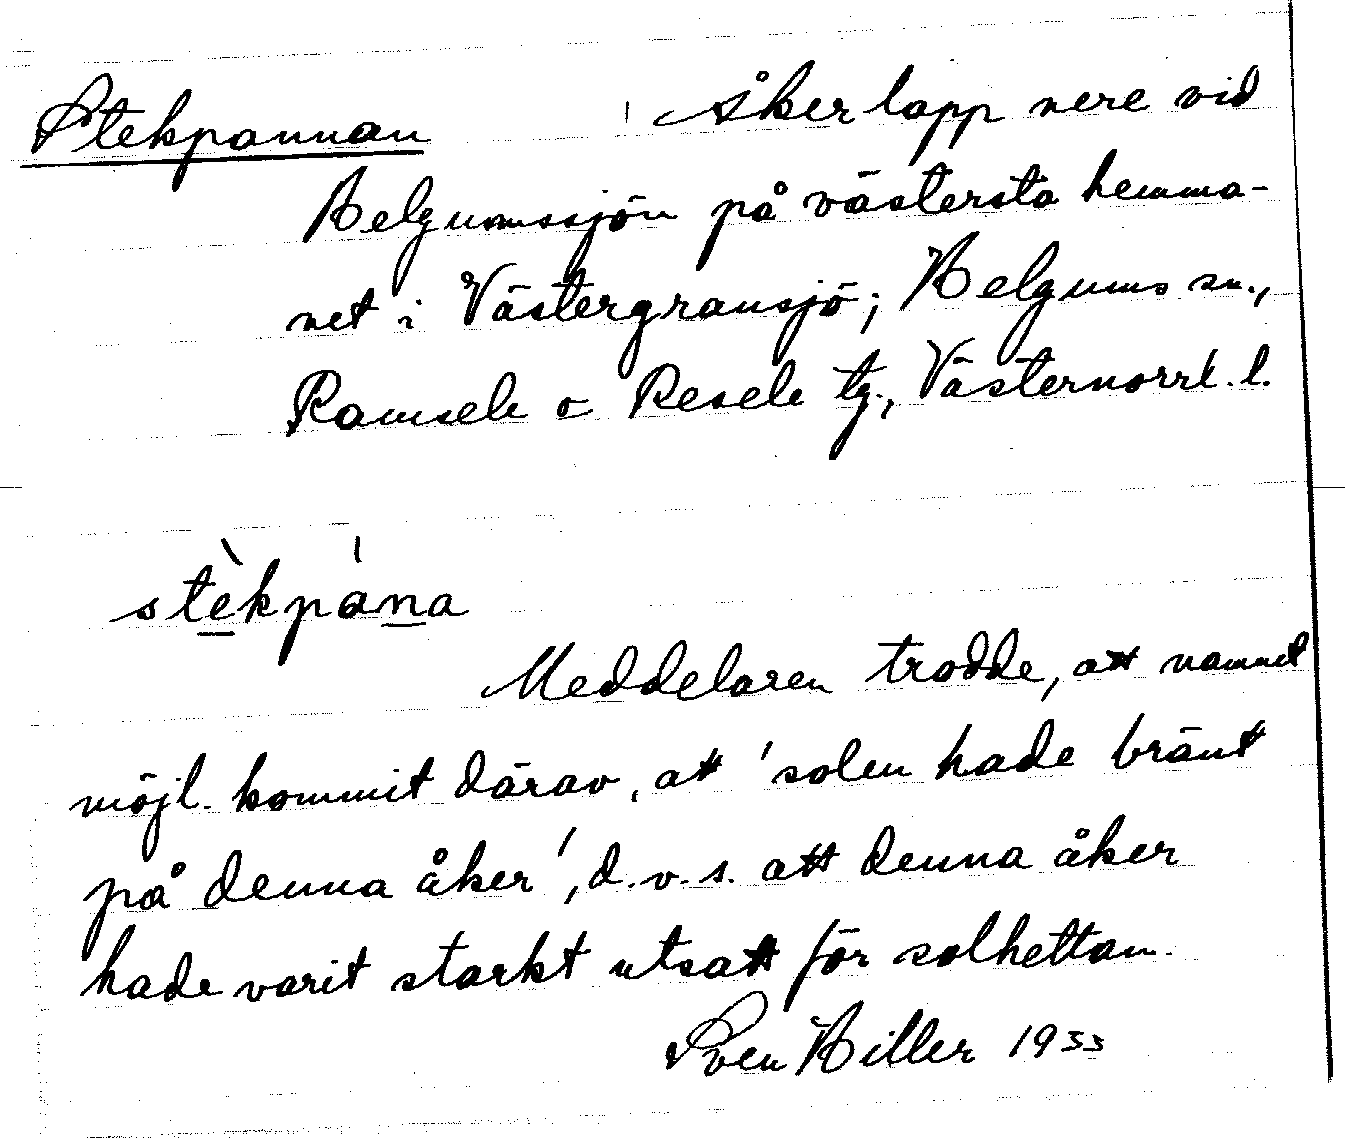 Stekpannan Åkerlapp nere vid
Helgumssjön på västersta hemma-
net i Västergransjö; Helgums sn.,
Ramsele o Resele tg., Västernorrl. l.
stèkpána
Meddelaren trodde, att namnet
möjl. kommit därav, att 'solen hade bränt
på denna åker', d.v.s. att denna åker
hade varit starkt utsatt för solhettan.
Sven Hiller 1933